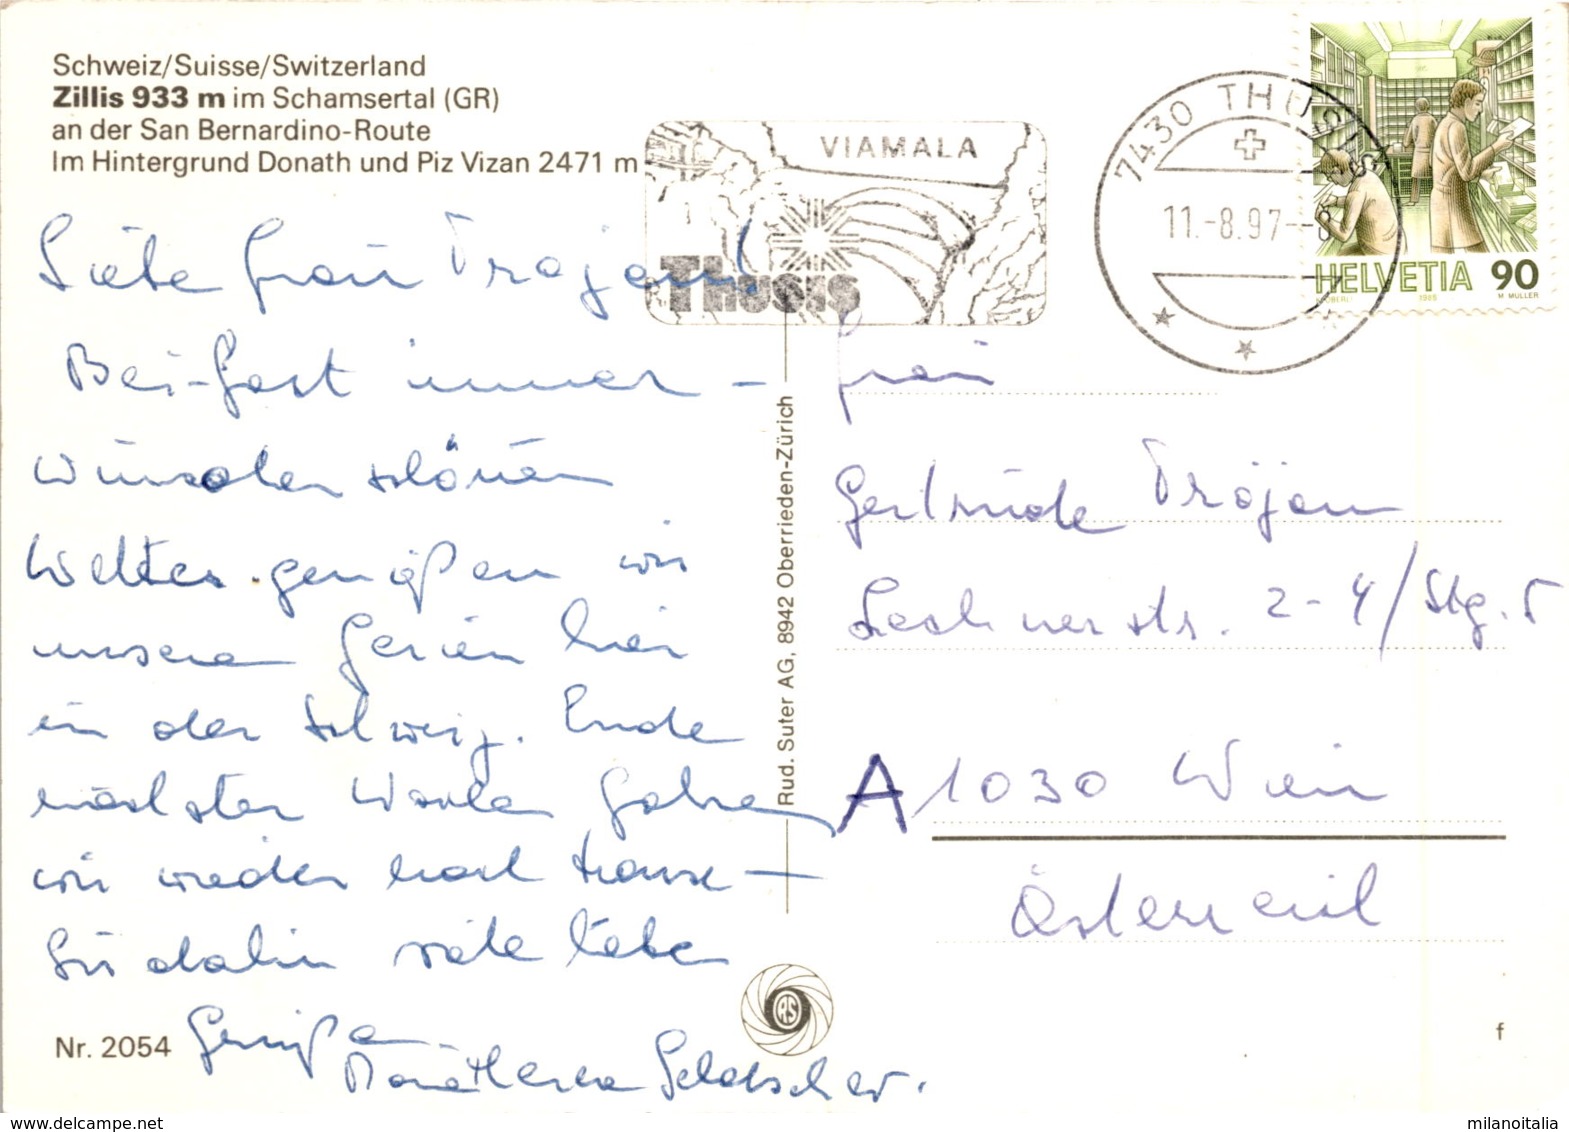 Schweiz/Suisse/Switzerland
Zillis 933 m im Schamsertal (GR)
an der San Bernardino-Route
Im Hintergrund Donath und Piz Vizan 2471 m
VIAMALA
Thusis
7430 THUSIS
11.-8.97--8
HELVETIA 90
1986 M. MULLER
Liebe Frau Trojan!
Bei fast immer -
wunderschönen
Wetter genießen wir
unsere Ferien hier
in der Schweiz. Ende
nächster Woche fahren
wir wieder nach Hause -
bis dahin viele liebe
Grüße
Rud. Suter AG, 8942 Oberrieden-Zürich
Frau
Gertrude Trojan
Lechnerstr. 2-4/Stg. 5
A 1030 Wien
Österreich
Nr. 2054
RS
f
milanoitalia